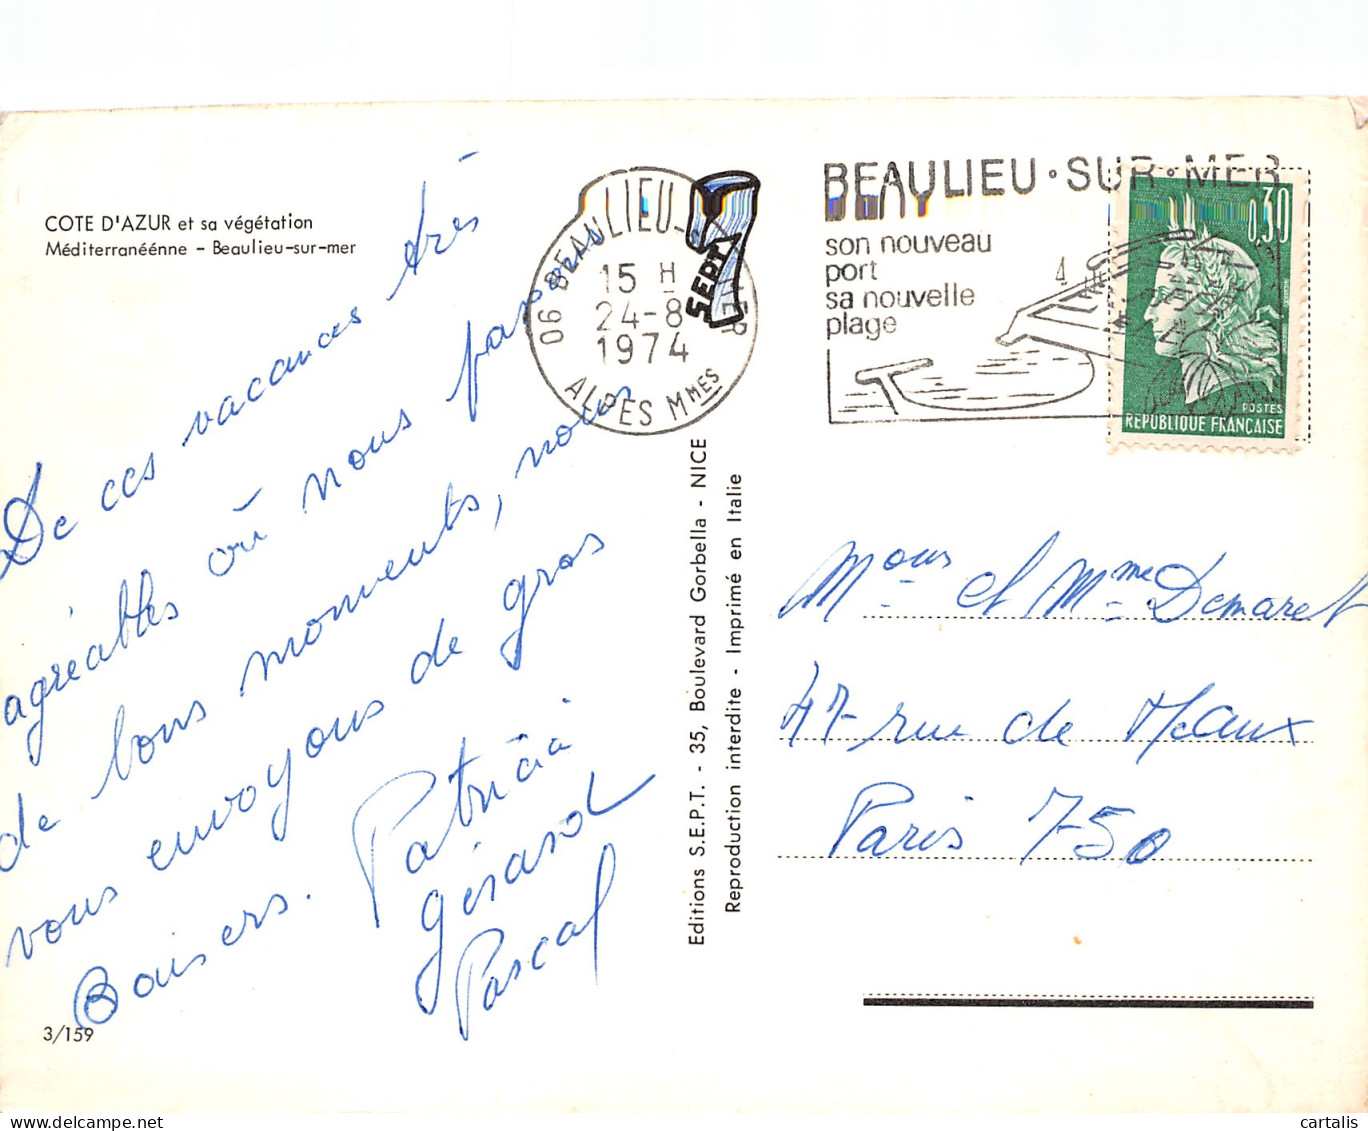 COTE D'AZUR et sa végétation
Méditerranéénne - Beaulieu-sur-mer
De ces vacances très
agréables où nous passons
de bons moments, nous
vous envoyons de gros
Baisers. Patricia
Gérard
Pascal
3/159
06 BEAULIEU-S-MER
15 H
24-8
1974
ALPES Mmes
7
SEPT
Editions S.E.P.T. - 35, Boulevard Gorbella - NICE
Reproduction interdite - Imprimé en Italie
BEAULIEU·SUR·MER
son nouveau
port
sa nouvelle
plage
0,30
POSTES
REPUBLIQUE FRANÇAISE
Mous et Mme Demaret
47 rue de Meaux
Paris 750
cartalis